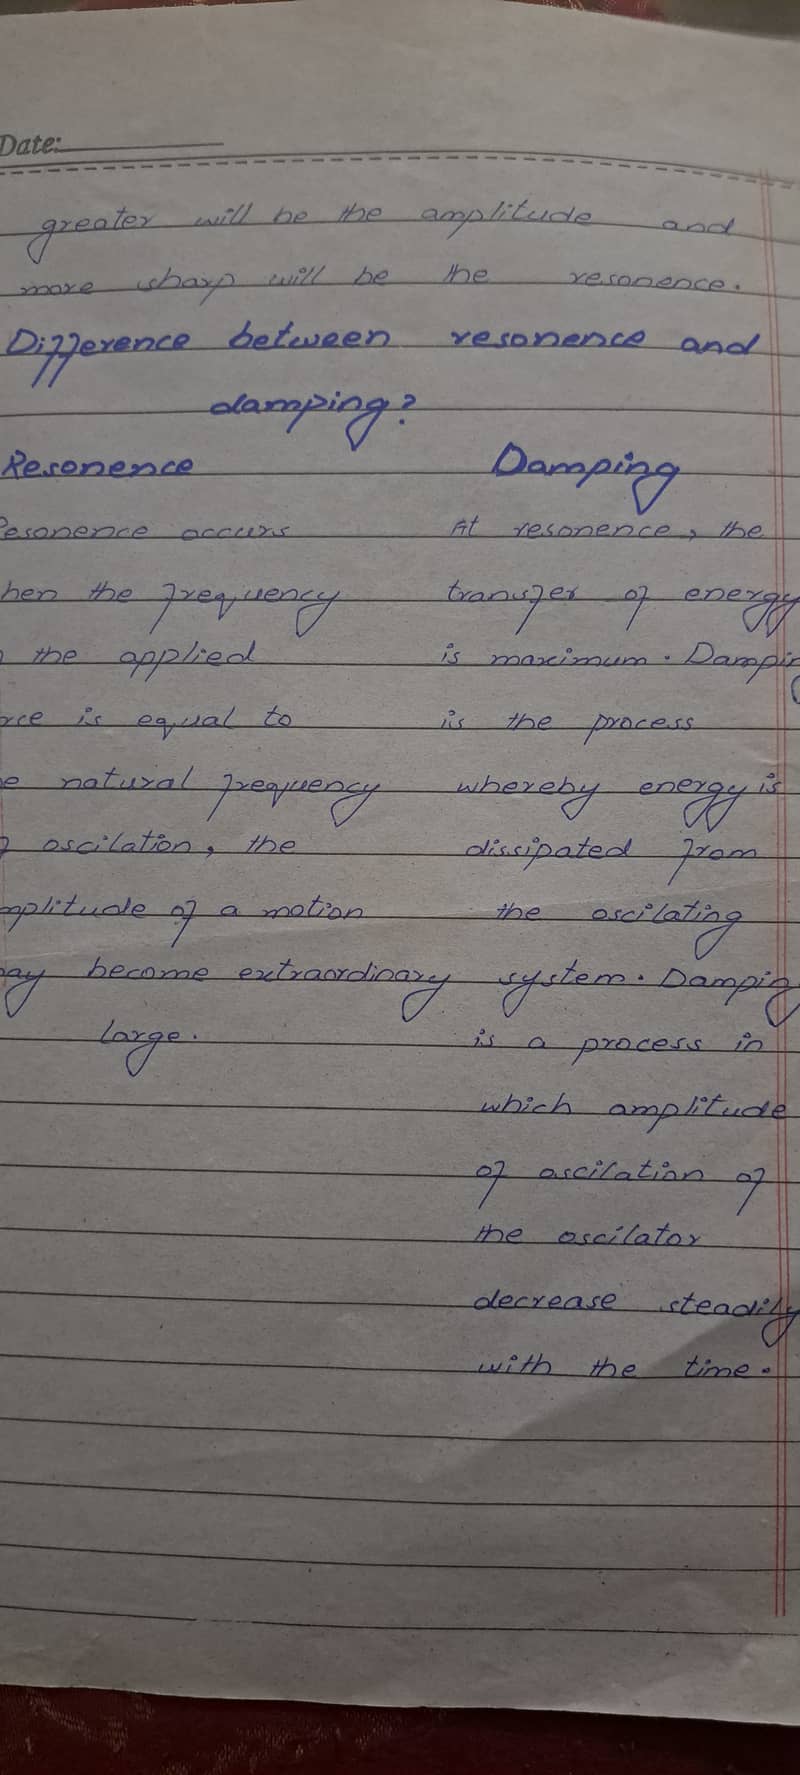 Date:
greater will be the amplitude and
more sharp will be the resonence.
Difference between resonence and
damping?
Resonence
Damping
esonence occurs
hen the frequency
the applied
rce is equal to
e natural frequency
oscilation, the
mplitude of a motion
ay become extraordinary
large.
At resonence, the
transfer of energy
is maximum. Dampin
is the process
whereby energy is
dissipated from
the oscilating
system. Damping
is a process in
which amplitude
of oscilation of
the oscilator
decrease steadily
with the time.